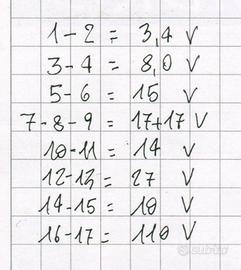 1-2 = 3,4 V
3-4 = 8,0 V
5-6 = 15 V
7-8-9 = 17+17 V
10-11 = 14 V
12-13 = 27 V
14-15 = 10 V
16-17 = 110 V
subito